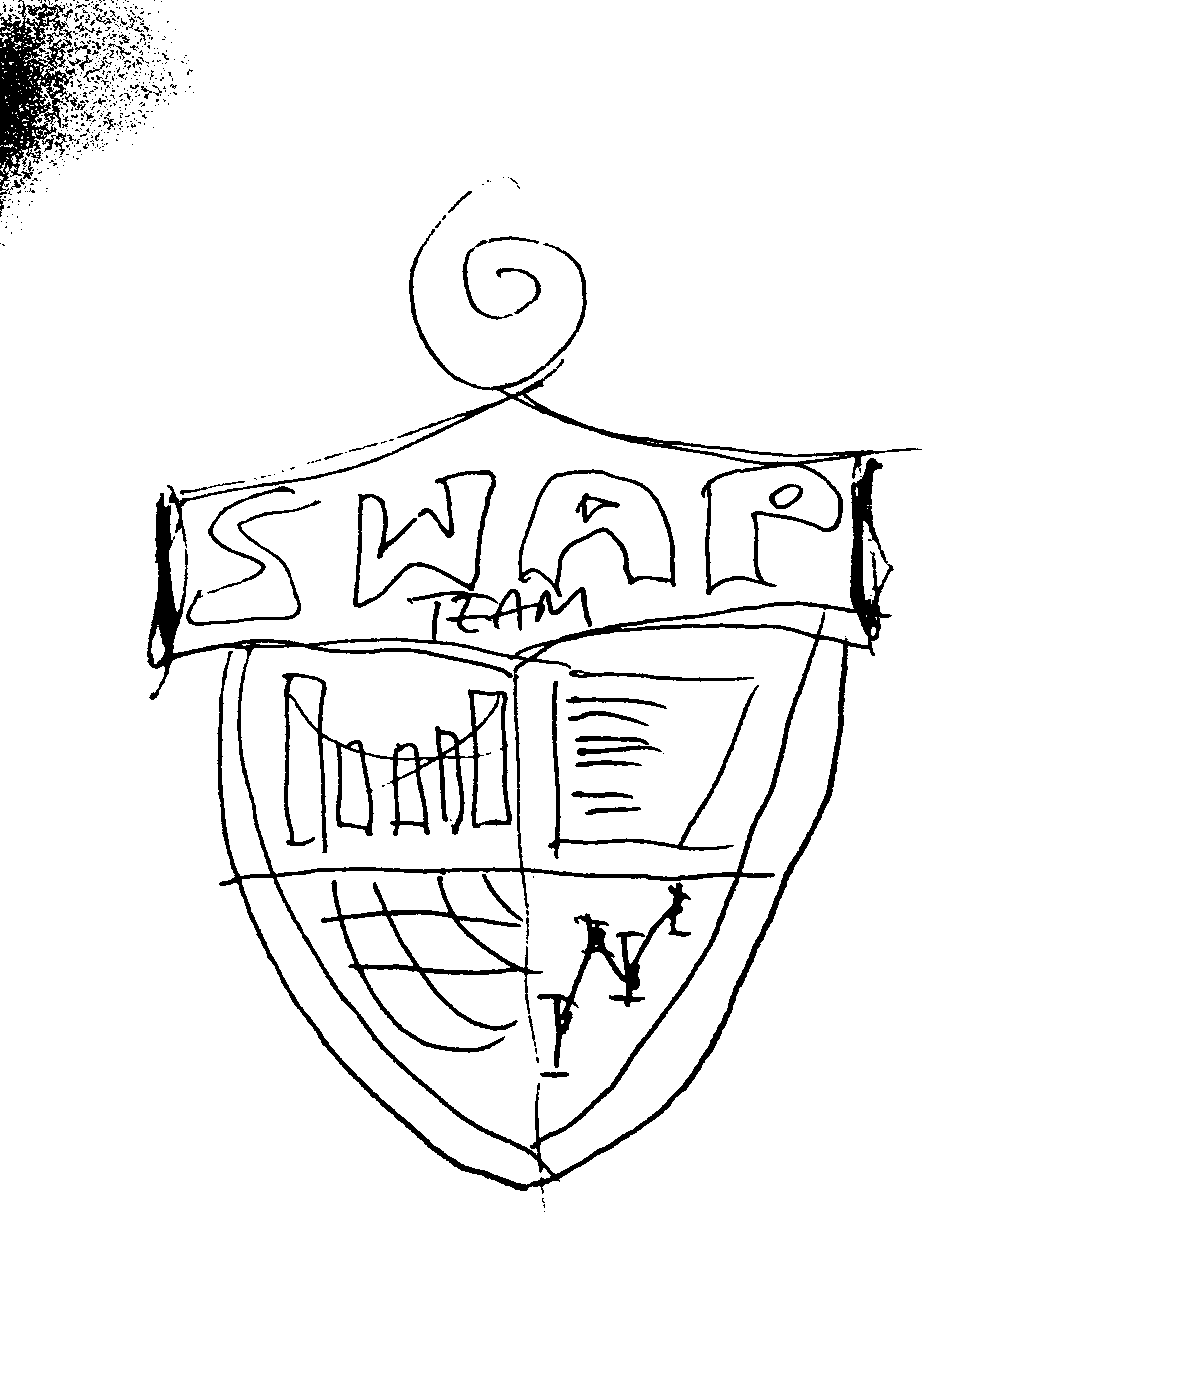 SWAP
TEAM